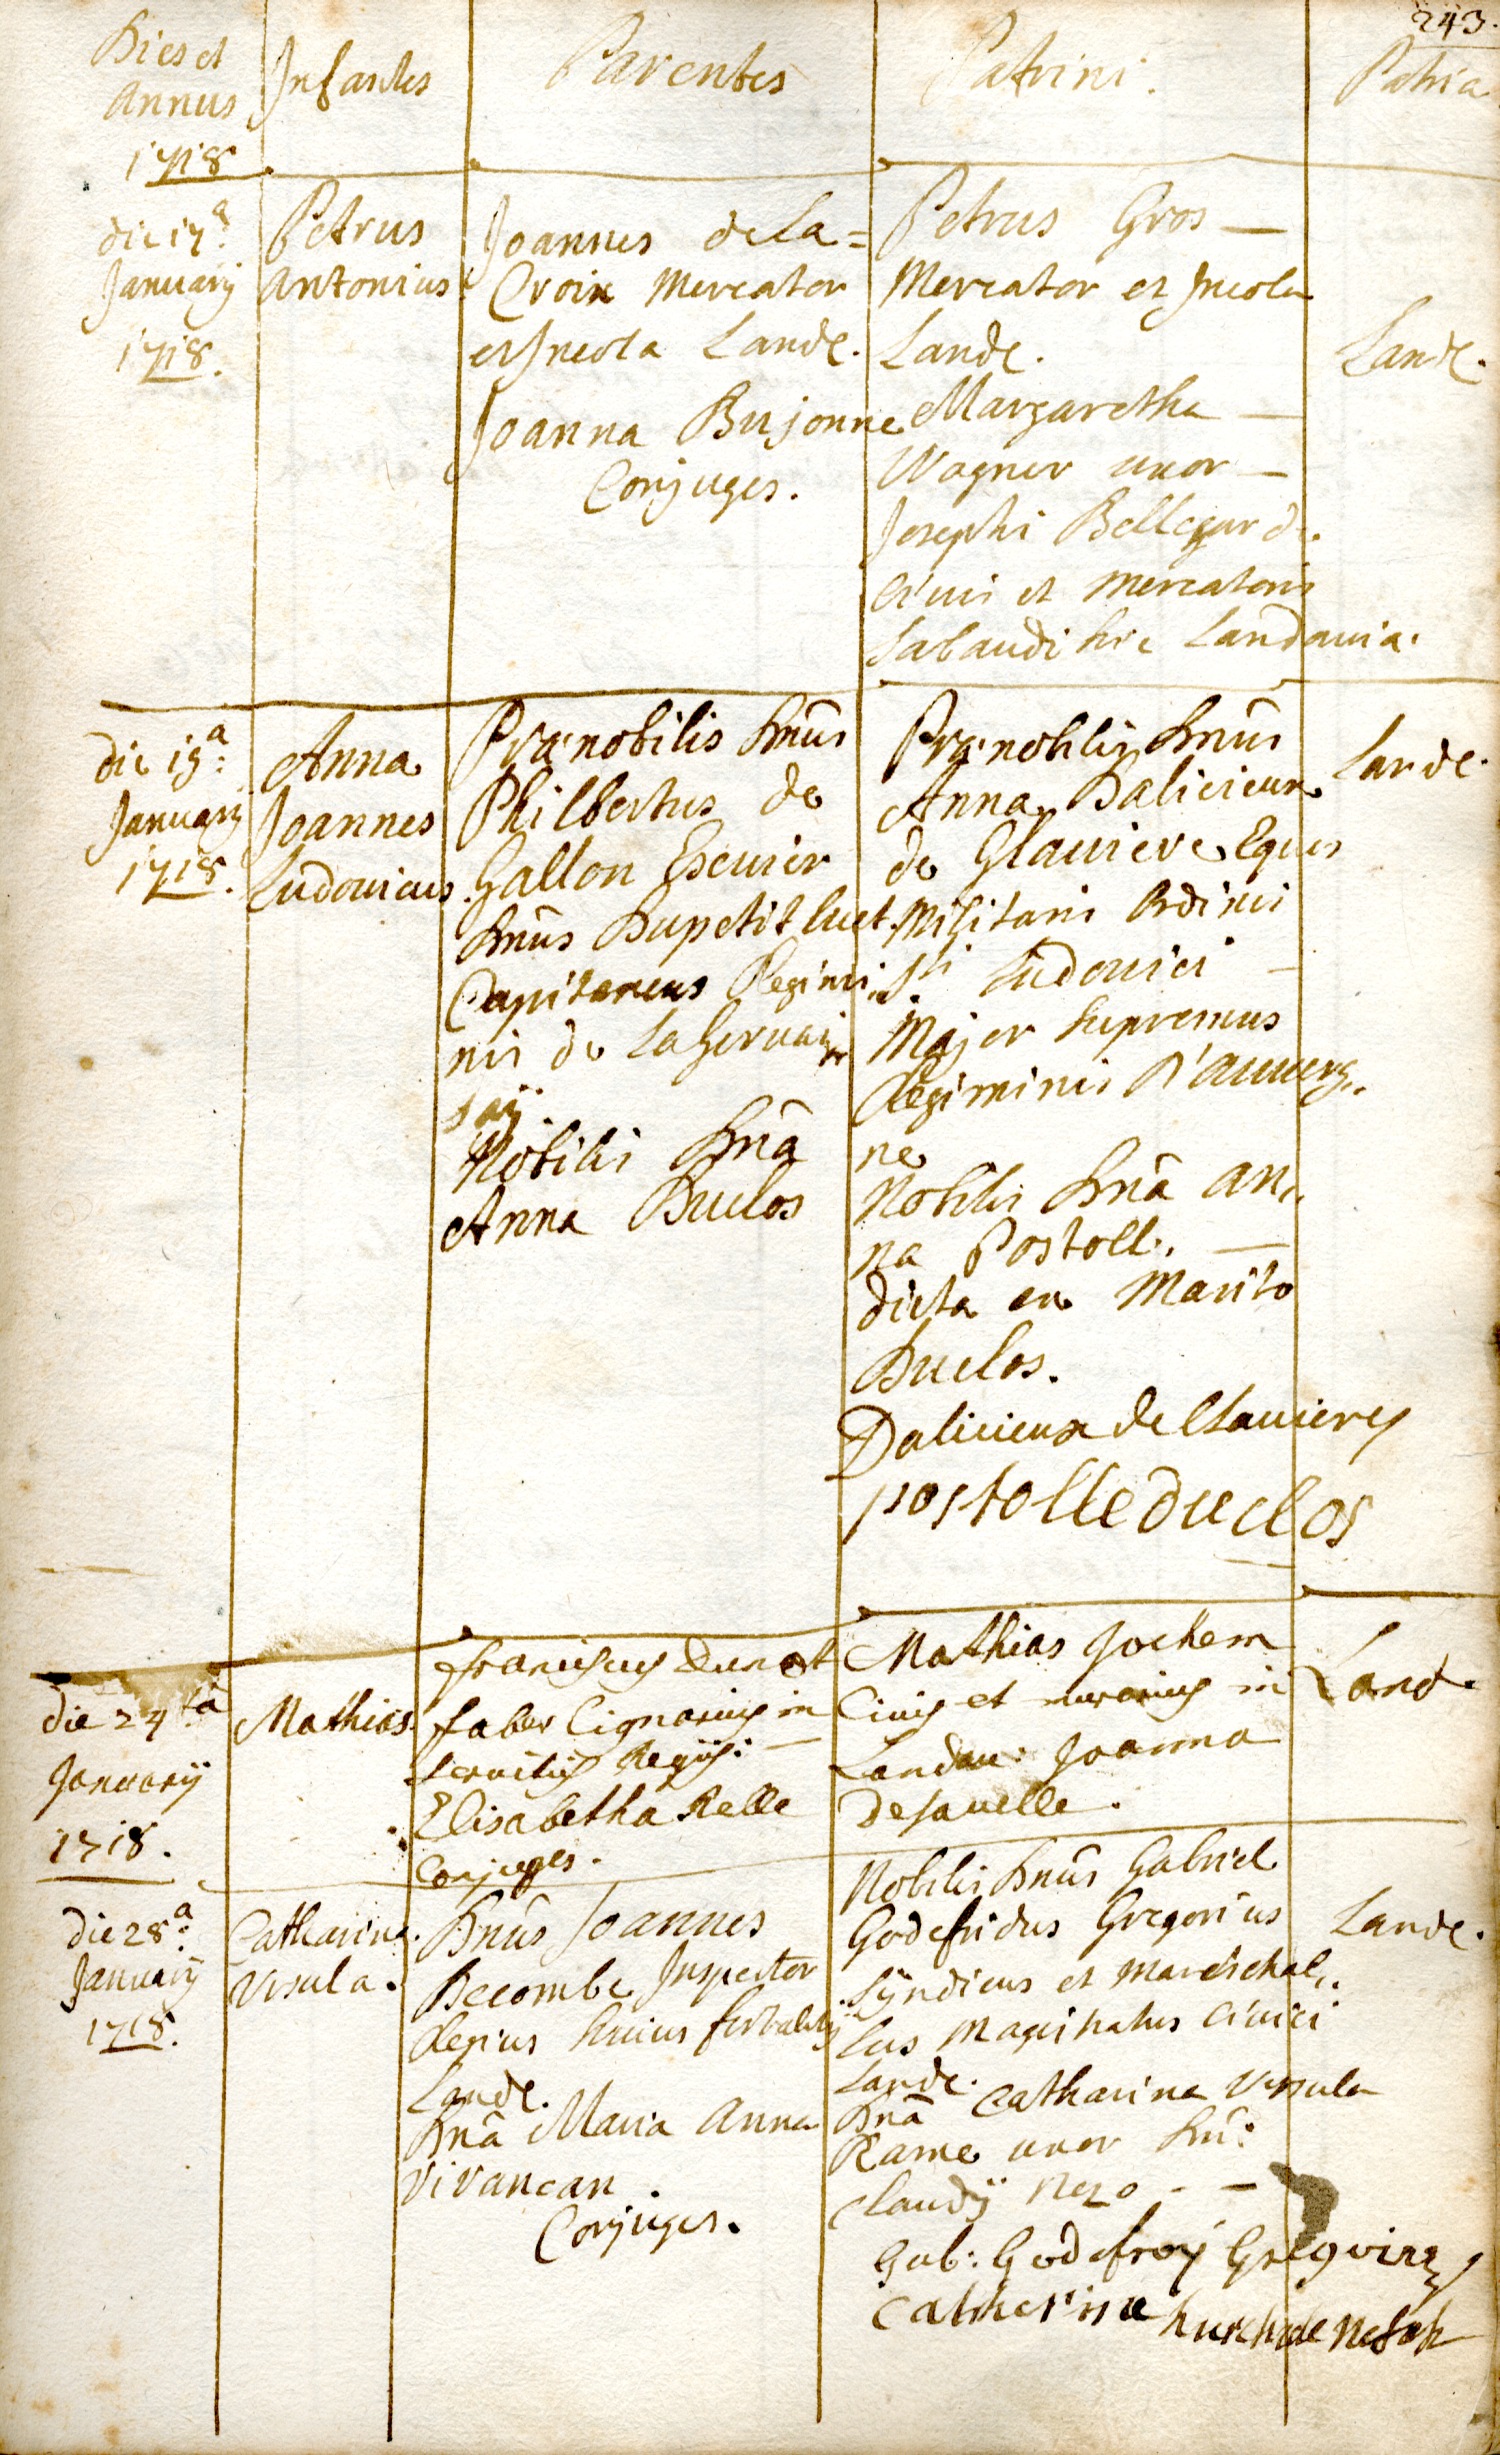 243.
Dies et
Annus
1718
Infantes
Parentes
Patrini.
Patria
die 17a
January
1718.
Petrus
Antonius
Joannes de la=
Croix Mercator
et Incola Landæ.
Joanna Bujonne
Conjuges.
Petrus Gros —
Mercator et Incola
Landæ.
Margaretha —
Wagner uxor —
Josephi Bellegarde
Civis et Mercatoris
Sabaudi hic Landavia.
Landæ.
die 19a:
January
1718.
Anna
Joannes
Ludovicus.
Prænobilis Dnūs
Philbertus de
Gallon Escuier
Dnūs Dupetit
Capitaneus Regimi„
nis de
Nobilis Dnā
Anna Duclos
Prænobilis Dnūs
Anna Dalicieux
de Glaviere Eques
Militaris Ordinis
Sti Ludovici —
Major Supremus
Regiminis D'auverg„
ne
Nobilis Dnā An„
na Postoll. —
dicta ex Marito
Duclos.
Dalicieux de Claviere
postolle duclos
Landæ.
die 24ta
January
1718.
Mathias.
Franciscus Dunot
faber lignarius in —
servitiis Regiis: —
Elisabetha Relle
Conjuges.
Mathias Jochem
Civis et murarius in
Landau. Joanna
Desauelle.
Land.
die 28a
January
1718.
Catharina
Ursula.
Dnūs Joannes
Becombe Inspector
Regius huius fortality
Landæ.
Dnā Maria Anna
Vivancan.
Conjuges.
Nobilis Dnūs Gabriel
Godefridus Gregorius
Syndicus et Mareschal„
lus Magistratus Civici
Landæ.
Dnā Catharina Ursula
Rame uxor Dni:
Claudÿ Nezo - —
Gab: Godefroy
Catherine
Landæ.